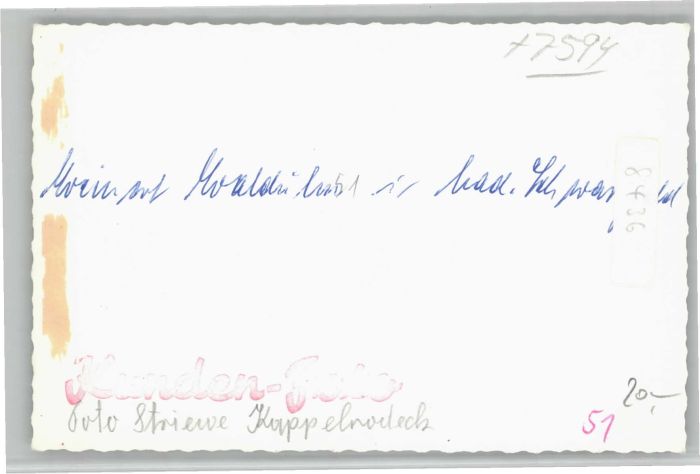 +7594
Weinort Waldulm i. bad. Schwarzwald
8436
Kunden-Foto
Foto Striewe Kappelrodeck
20,-
51